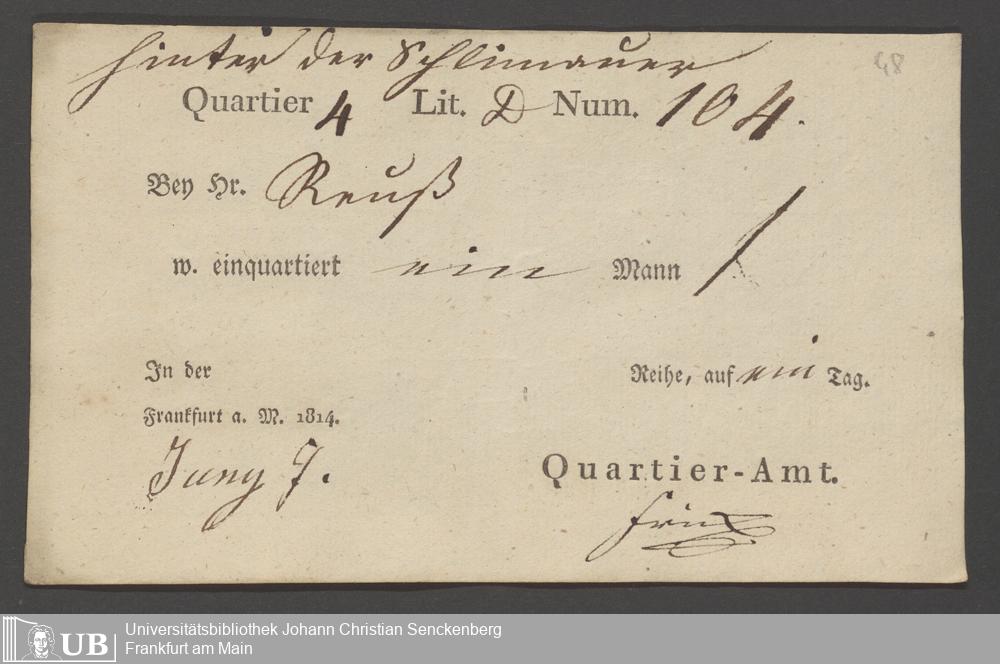 hinter der Schlimauer
48
Quartier 4 Lit. D Num. 104.
Bey Hr. Reuß
w. einquartiert ein Mann /
In der Reihe, auf ein Tag.
Frankfurt a. M. 1814.
Juny 7.
Quartier-Amt.
UB
Universitätsbibliothek Johann Christian Senckenberg
Frankfurt am Main